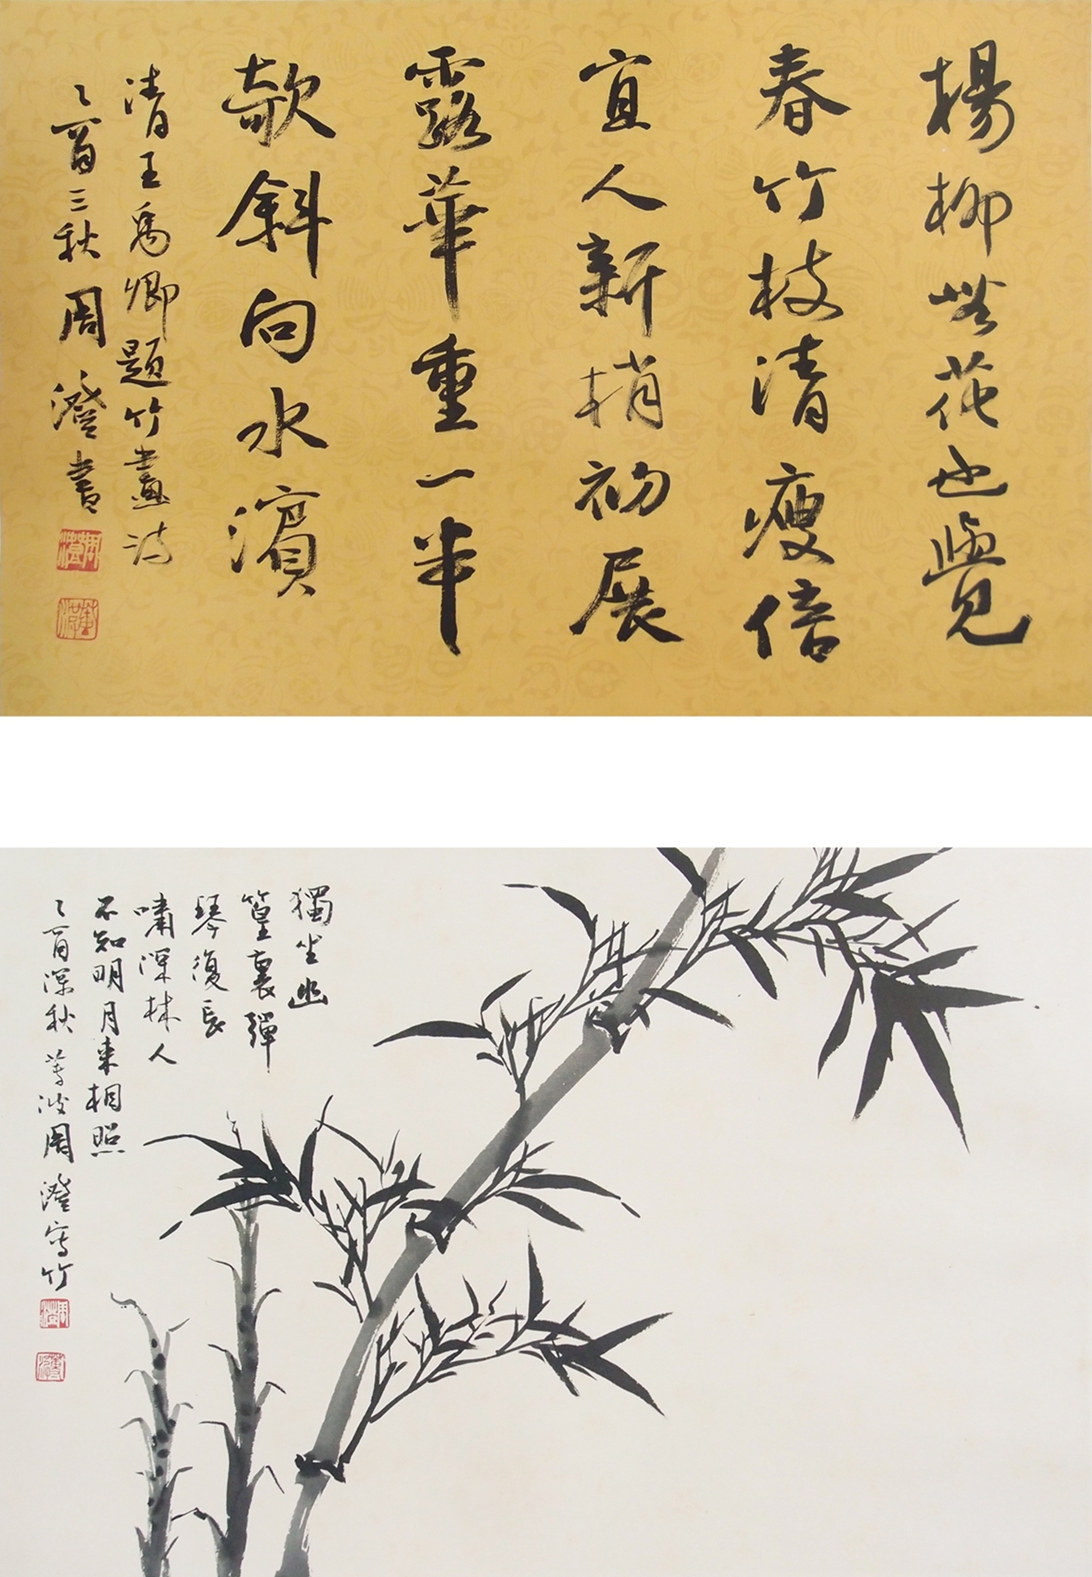 楊柳無花也覺
春竹枝清瘦倍
宜人新梢初展
露華重一半
欹斜向水濱
清王禹卿題竹畫詩
乙酉三秋周澄書
周澄
獨坐幽
篁裏彈
琴復長
嘯深林人
不知明月來相照
乙酉深秋蓴波周澄寫竹
周澄